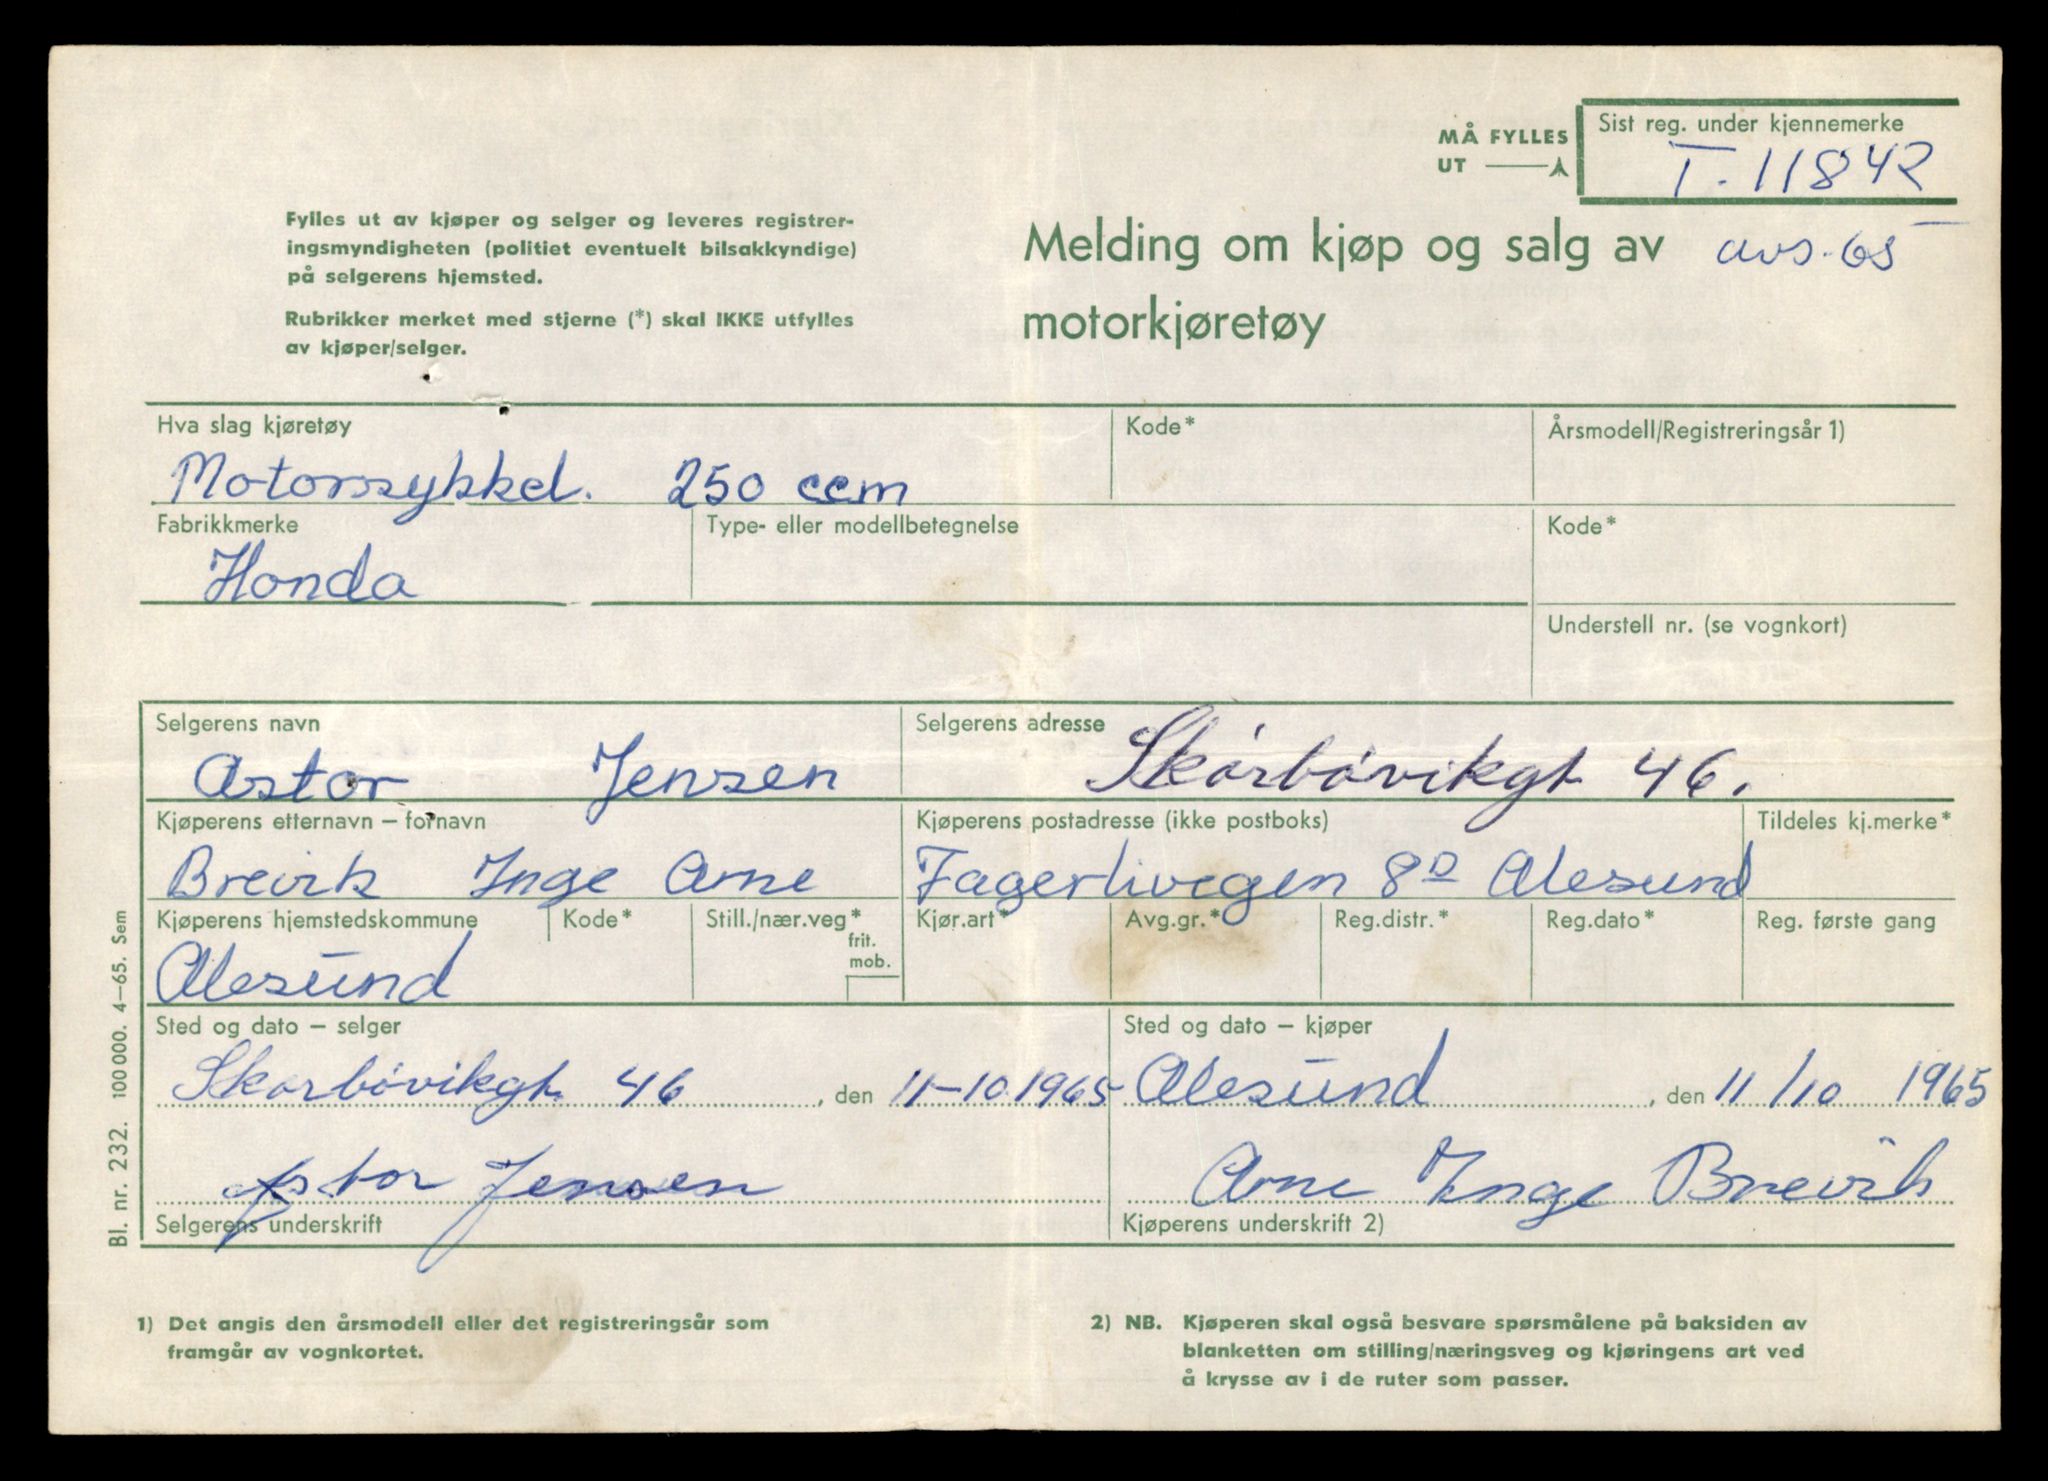 MÅ FYLLES
UT
Sist reg. under kjennemerke
T. 11842
Fylles ut av kjøper og selger og leveres registrer-
ingsmyndigheten (politiet eventuelt bilsakkyndige)
på selgerens hjemsted.
Rubrikker merket med stjerne (*) skal IKKE utfylles
av kjøper/selger.
Melding om kjøp og salg av
motorkjøretøy
avs. 65
Hva slag kjøretøy
Motorsykkel. 250 ccm
Kode*
Årsmodell/Registreringsår 1)
Fabrikkmerke
Honda
Type- eller modellbetegnelse
Kode*
Understell nr. (se vognkort)
Selgerens navn
Astor Jensen
Selgerens adresse
Skarbøvikgt 46.
Kjøperens etternavn – fornavn
Brevik Inge Arne
Kjøperens postadresse (ikke postboks)
Fagerlivegen 8D Ålesund
Tildeles kj.merke*
Kjøperens hjemstedskommune
Ålesund
Kode*
Still./nær.veg*
frit.
mob.
Kjør.art*
Avg.gr.*
Reg.distr.*
Reg.dato*
Reg. første gang
Sted og dato – selger
Skarbøvikgt. 46, den 11-10.1965
Sted og dato – kjøper
Ålesund, den 11/10 1965
Astor Jensen
Selgerens underskrift
Arne Inge Brevik
Kjøperens underskrift 2)
Bl. nr. 232. 100 000. 4–65. Sem
1) Det angis den årsmodell eller det registreringsår som
framgår av vognkortet.
2) NB. Kjøperen skal også besvare spørsmålene på baksiden av
blanketten om stilling/næringsveg og kjøringens art ved
å krysse av i de ruter som passer.